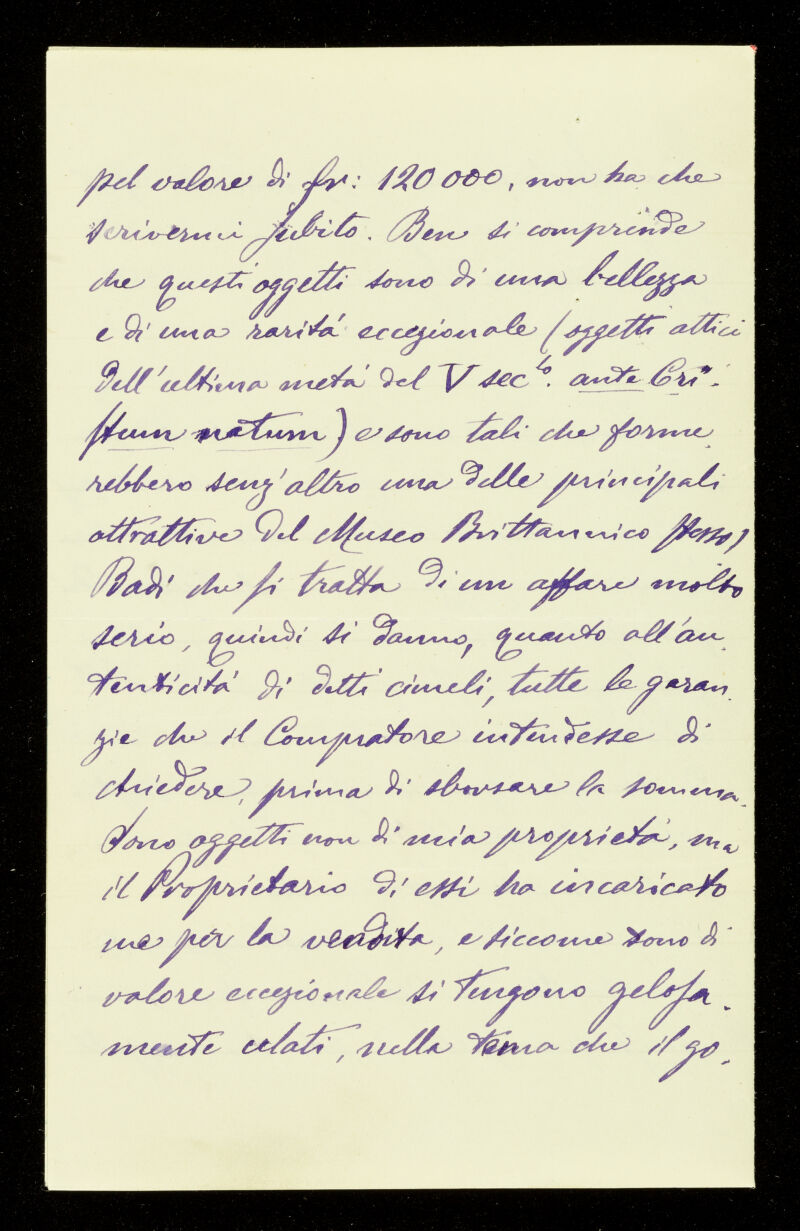 pel valore di fr: 120 000, non ha che
scrivermi subito. Ben si comprende
che questi oggetti sono di una bellezza
e di una raritá eccezionale (oggetti attici
dell'ultima metá del V sec.º ante Cri-
stum natum) e sono tali che forme-
rebbero senz'altro una delle principali
attrattive del Museo Brittannico stesso)
Badi che si tratta di un affare molto
serio, quindi si danno, quanto all'au-
tenticitá di detti cimeli, tutte le garan-
zie che il Compratore intendesse di
chiedere, prima di sborsare la somma.
Sono oggetti non di mia proprietá, ma
il Proprietario di essi ha incaricato
me per la vendita, e siccome sono di
valore eccezionale si tengono gelosa-
mente celati, nella tema che il go-